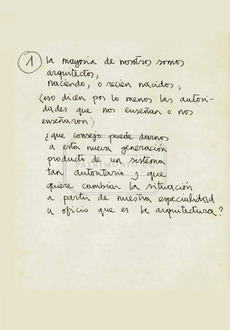 1 la mayoria de nostros somos
arquitectos,
naciendo, o recien nacidos,
(eso dicen por lo menos las autori-
dades que nos enseñan o nos
enseñaron)
¿que consejo puede darnos
a esta nueva generación
producto de un sistema
tan autoritario y que
quiere cambiar la situación
a partir de nuestra especialidad
u oficio que es la arquitectura?